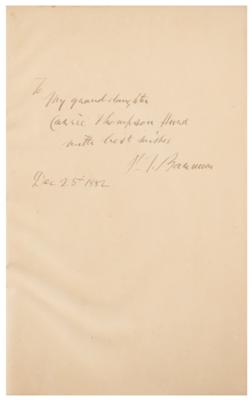 To
My grand daughter
Carrie Thompson Hurd
with best wishes
P. T. Barnum
Dec 25th 1882